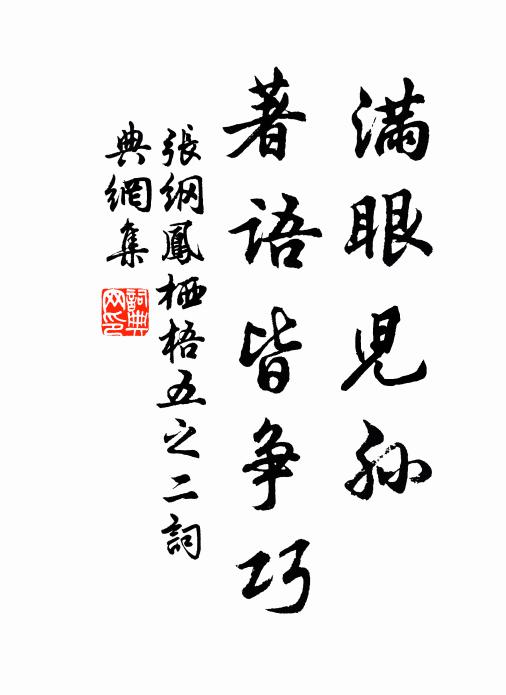 滿眼兒孫
著語皆爭巧
張綱鳳栖梧五之二詞
典網集
詞典網印